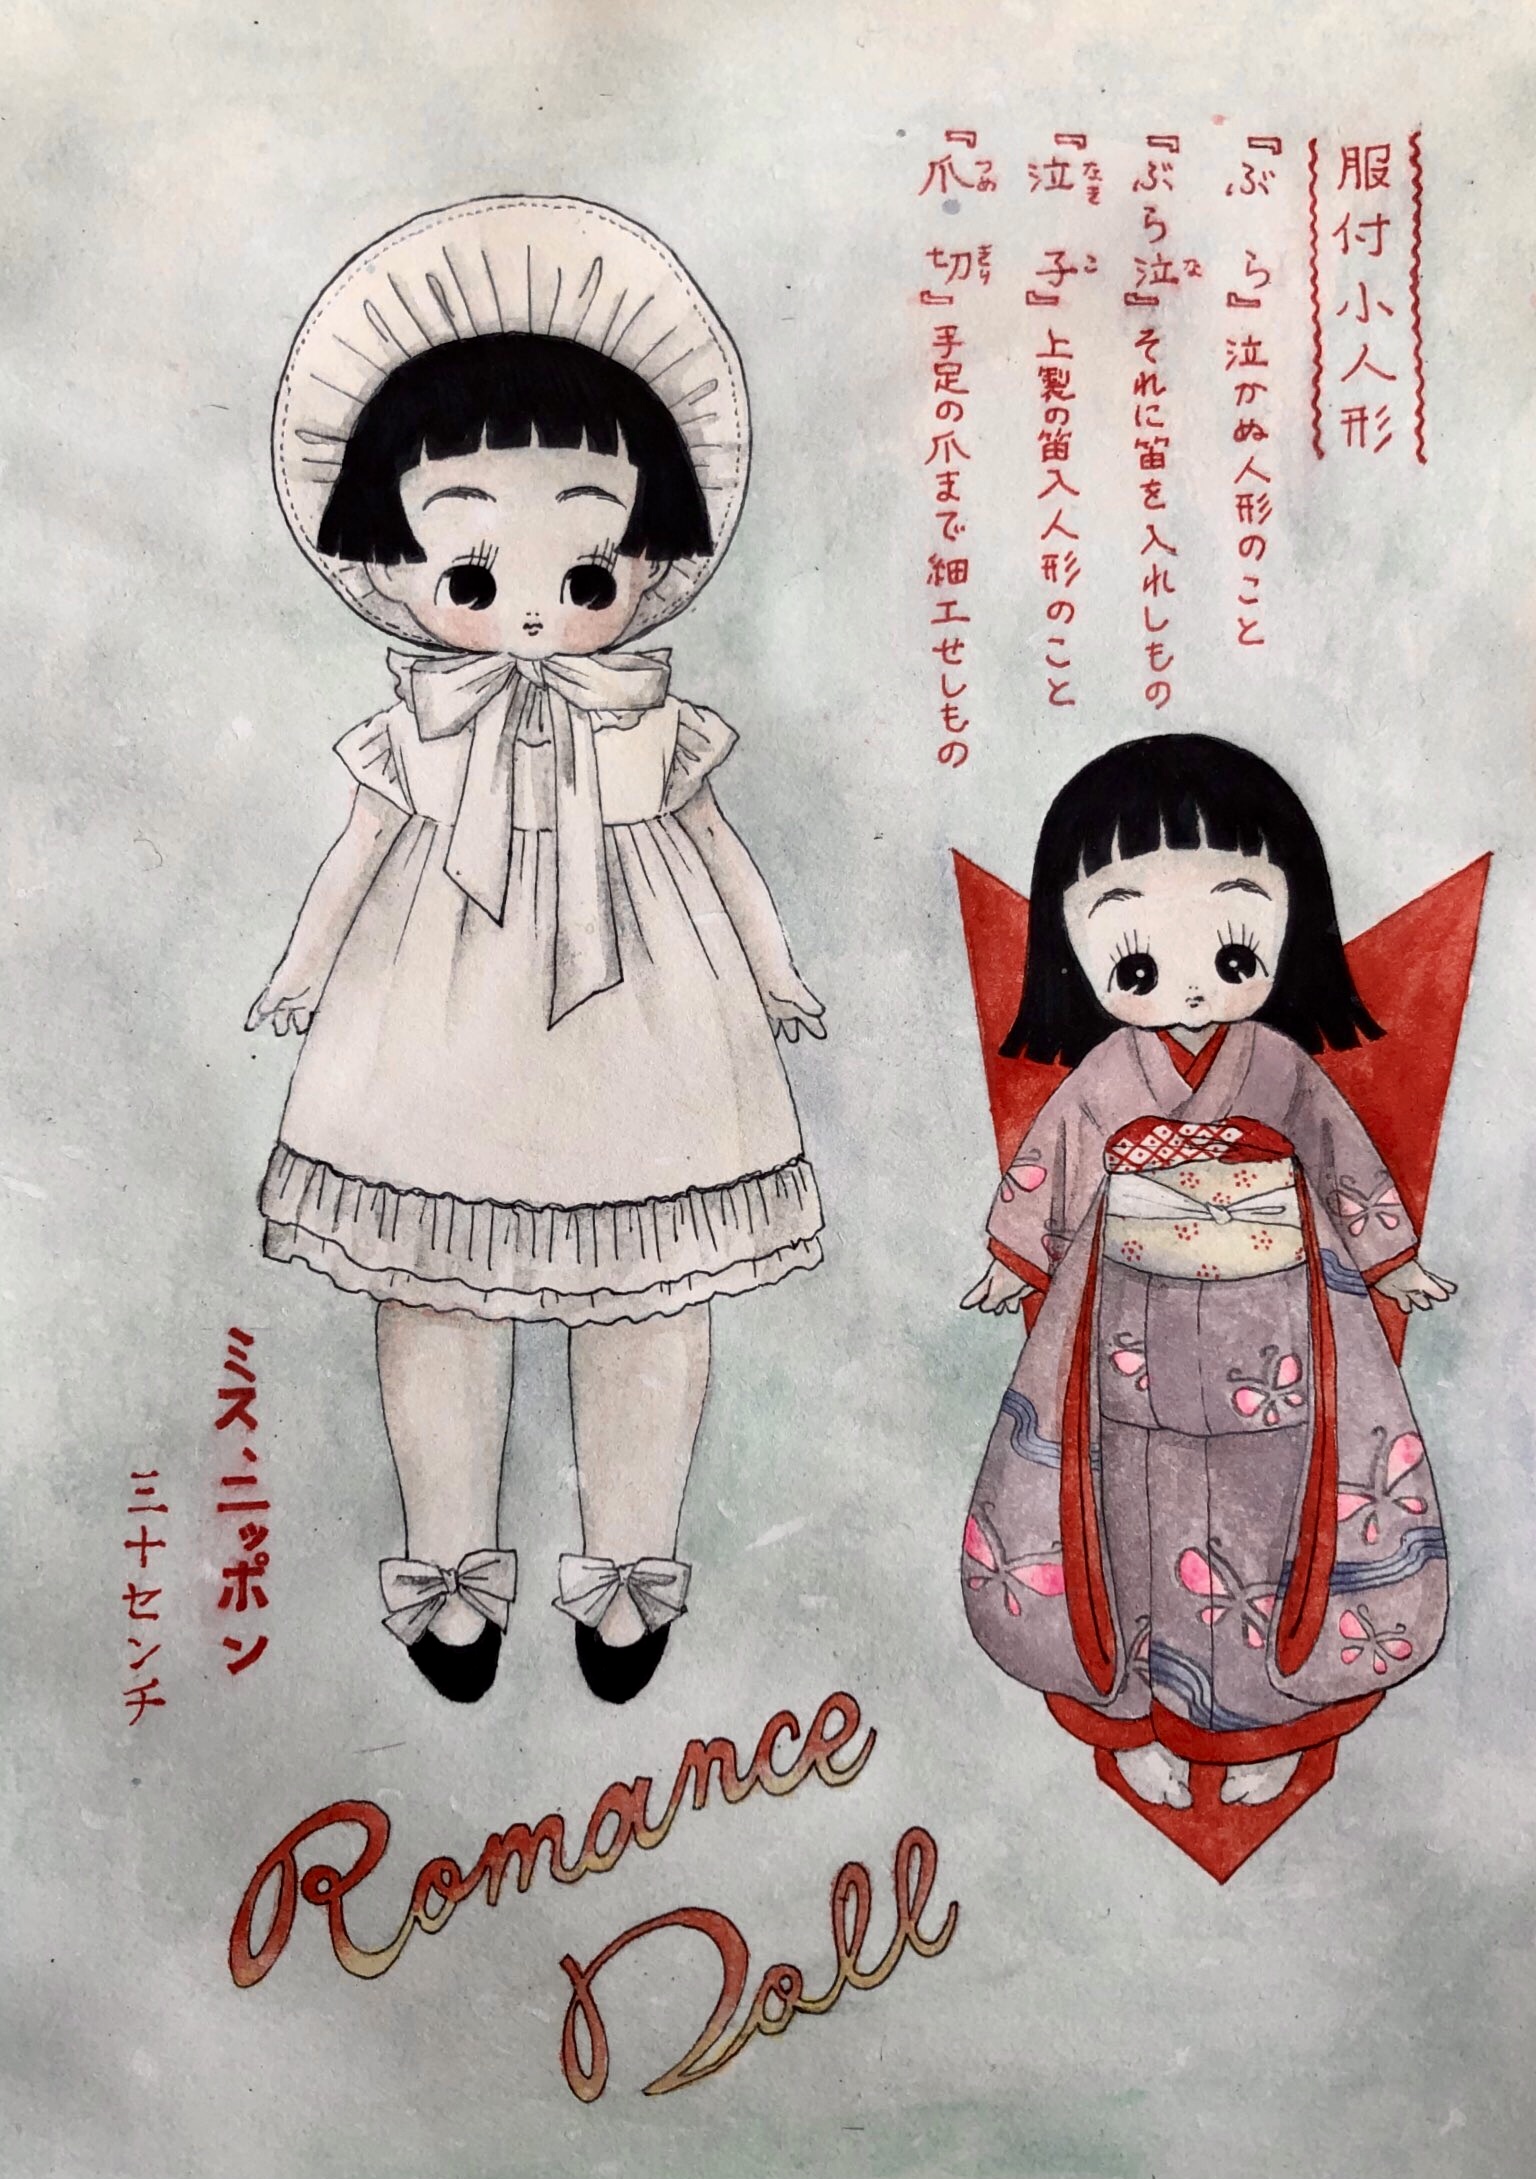 服付小人形
『ぶら』泣かぬ人形のこと
『ぶら泣』それに笛を入れしもの
『泣子』上製の笛入人形のこと
『爪切』手足の爪まで細工せしもの
ミス、ニッポン
三十センチ
Romance
Doll